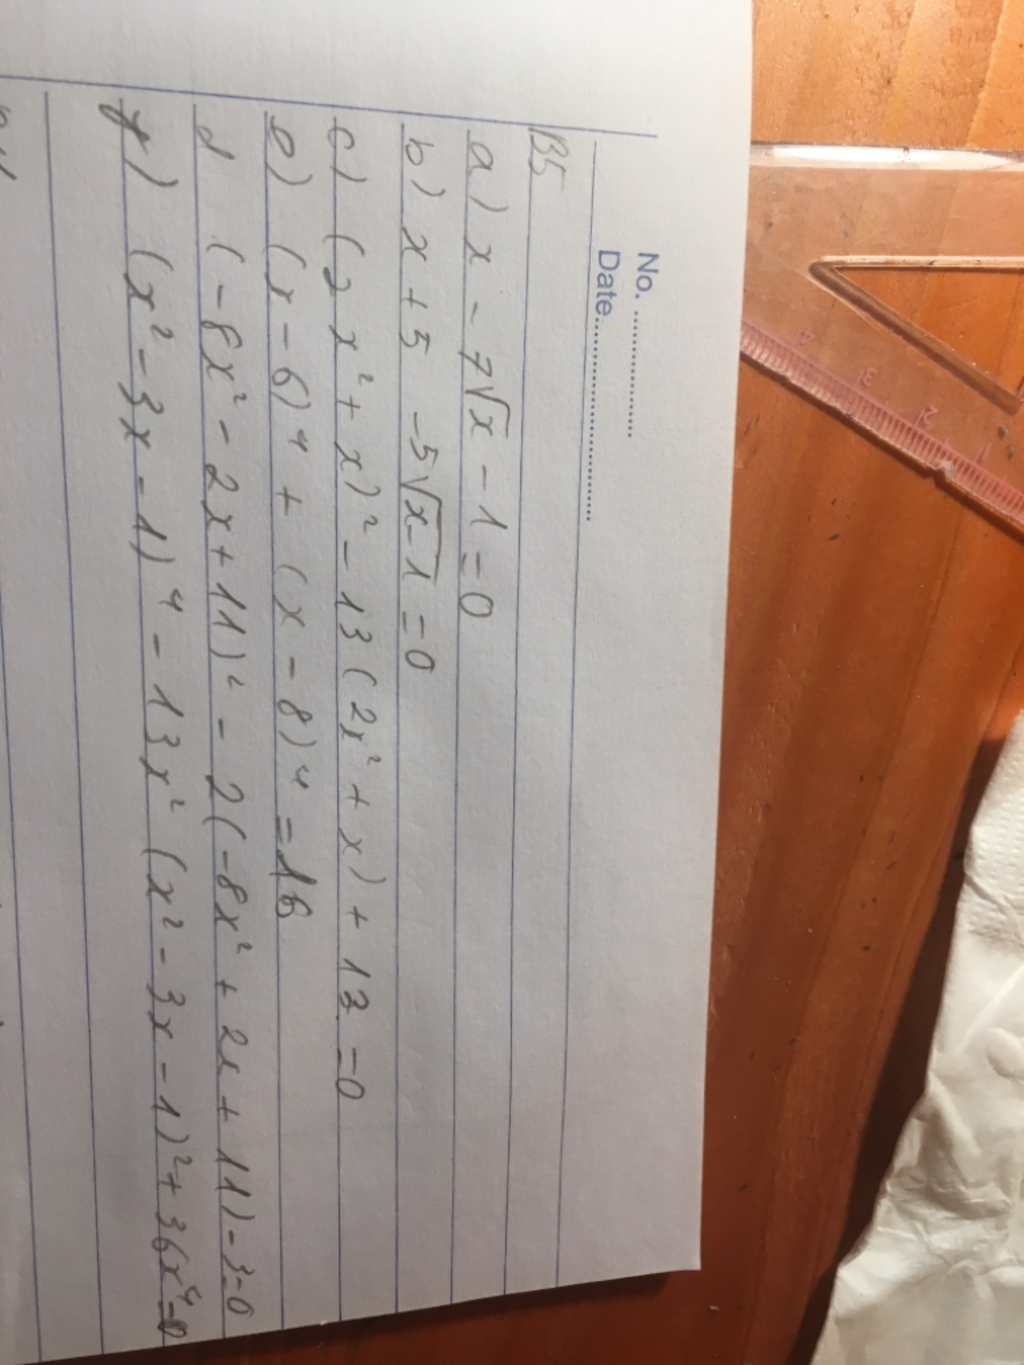 No. ................
Date.............................
B5
a) x - 7√x - 1 = 0
b) x + 5 - 5√x-1 = 0
c) (2x² + x)² - 13(2x² + x) + 12 = 0
e) (x - 6)⁴ + (x - 8)⁴ = 16
d (-8x² - 2x + 11)² - 2(-8x² + 2x + 11) - 3 = 0
f) (x² - 3x - 1)⁴ - 13x² (x² - 3x - 1)² + 36x⁴ = 0
4
3
2
1